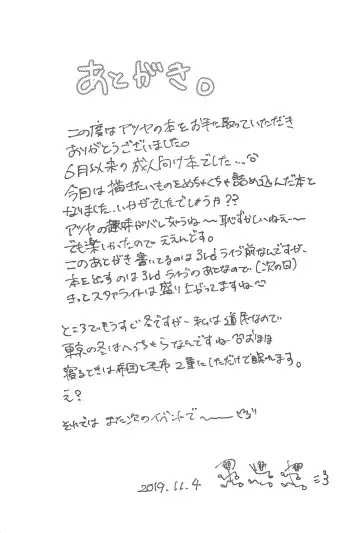 あとがき。
この度はアツヤの本をお手に取っていただき
ありがとうございました。
6月以来の放人向け本でした...
今回は描きたいものをめちゃくちゃ詰め込んだ本と
なりました。いかがでしたでしょうか??
アツヤの趣味がバレちゃうね〜恥ずかしいねぇ〜
でも楽しかったのでええんです。
このあとがき書いてるのは3rdライブ前なんですが、
本を出すのは3rdライブのあとなので(次の日)
きっとスタァライトは盛り上がってますね
ところでもうすぐ冬ですが私は道民なので
東京の冬はへっちゃらなんですねおほほ
寝るときは布団と毛布2重にしただけで眠れます。
え?
それでは また次のイベントで〜
2019.11.4